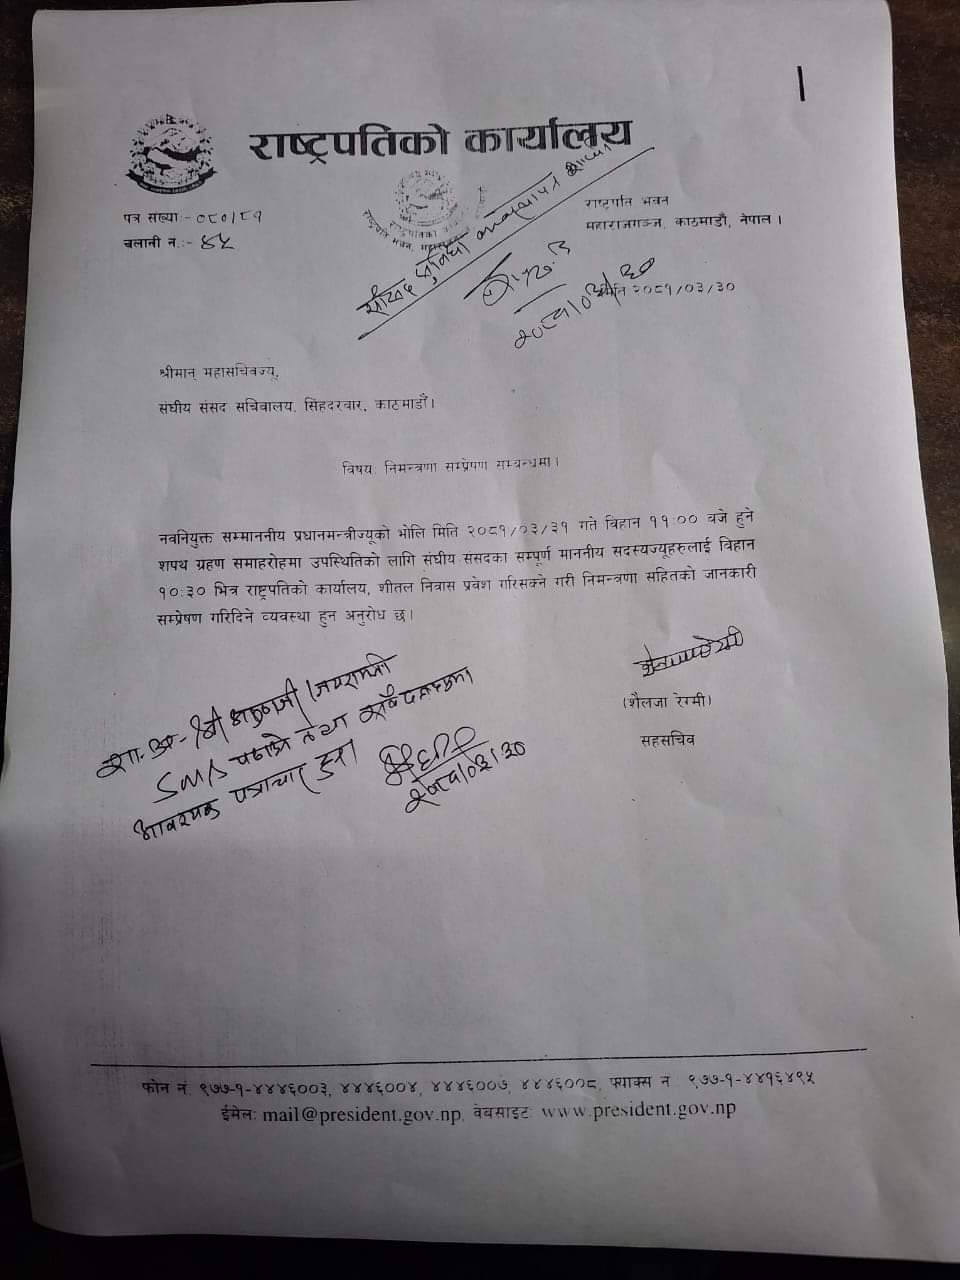 राष्ट्रपतिको कार्यालय
पत्र संख्याः- ०८०/८१
चलानी नं.:- ४५
राष्ट्रपति भवन
महाराजगञ्ज, काठमाडौं, नेपाल ।
राष्ट्रपतिको
भवन,
मिति २०८१/०३/३०
श्रीमान् महासचिवज्यू,
संघीय संसद सचिवालय, सिंहदरवार, काठमाडौँ।
विषयः निमन्त्रणा सम्प्रेषण सम्बन्धमा ।
नवनियुक्त सम्माननीय प्रधानमन्त्रीज्यूको भोलि मिति २०८१/०३/३१ गते विहान ११:०० वजे हुने
शपथ ग्रहण समाहरोहमा उपस्थितिको लागि संघीय संसदका सम्पूर्ण माननीय सदस्यज्यूहरुलाई विहान
१०:३० भित्र राष्ट्रपतिको कार्यालय, शीतल निवास प्रवेश गरिसक्ने गरी निमन्त्रणा सहितको जानकारी
सम्प्रेषण गरिदिने व्यवस्था हुन अनुरोध छ।
(शैलजा रेग्मी)
सहसचिव
शा.अ-श्री
SMS पठाउने तथा
आवश्यक पत्राचार
२०८१/०३/३०
फोन नं. ९७७-१-४४४६००३, ४४४६००४, ४४४६००७, ४४४६००८, फ्याक्स नं. ९७७-१-४४१६४९५
ईमेलः mail@president.gov.np, वेबसाइटः www.president.gov.np